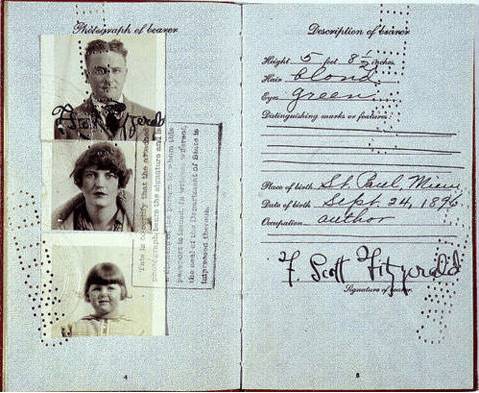 Photograph of bearer
F. Scott Fitzgerald
This is to certify that the attached
photograph bears the signature and is
of the person to whom this
passport is issued. In witness whereof,
the seal of the Department of State is
impressed thereon.
4
Description of bearer
Height 5 feet 8 ½ inches.
Hair blond
Eyes green
Distinguishing marks or features:
Place of birth St. Paul, Minn
Date of birth Sept 24, 1896
Occupation author
F. Scott Fitzgerald
Signature of bearer.